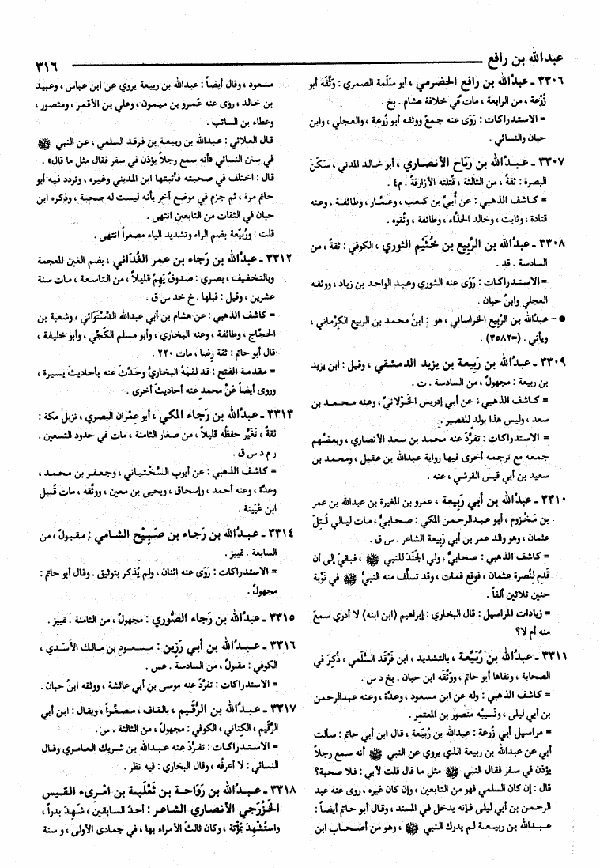 عبدالله بن رافع
٣١٦
٣٣٠٦ ـ عبدُالله بن رافع الحَضرمي ، أبو سلَمة المصري : ثقة ، أبو
زُرْعة ، من الرابعة ، مات في خلافة هشام . بخ .
= الاستدراكات : رَوَى عنه جمعٌ ووثقه أبو زُرعة ، والعجلي ، وابن
حبان والنسائي .
٣٣٠٧ ـ عبدُالله بن رَبَاح الأنصاري ، أبو خالد المدني ، سَكَنَ
البصرة : ثقةٌ ، من الثالثة ، قتلته الأزارقةُ . م٤ .
= كاشف الذهبي : عن أُبيّ بن كعب ، وعمّار ، وطائفة ، وعنه
قتادة ، وثابت ، وخالد الحذَّاء ، وطائفة ، وثقوه .
٣٣٠٨ ـ عبدُالله بن الرَّبيع بن خُثَيْم الثوري ، الكوفي : ثقةٌ ، من
السادسة . قد .
= الاستدراكات : رَوَى عنه الثوري وعبد الواحد بن زياد ، ووثقه
العجلي وابنُ حبان .
● ـ عبدُالله بن الرَّبيع الخراساني ، هو : ابنُ محمد بن الربيع الكِرْماني ،
ويأتي . (=٣٥٨٢) .
٣٣٠٩ ـ عبدُالله بن ربيعة بن يزيد الدمشقي ، وقيل : ابن يزيد
بن ربيعة : مجهولٌ ، من السادسة . ت .
= كاشف الذهبي : عن أبي إدريس الخَوْلاني ، وعنه محمد بن
سعد ، وليس هذا بولد للقصير .
= الاستدراكات : تفرَّدَ عنه محمد بن سعد الأنصاري ، وبعضُهم
جمعه مع ترجمه أخرى فيها رواية عبدالله بن عقيل ، ومحمد بن
سعيد بن أبي قيس القرشي ، عنه .
٣٣١٠ ـ عبدُالله بن أبي رَبيعة ، عمرو بن المغيرة بن عبدالله بن عمر
بن مَخْزُوم ، أبو عبدالرحمن المكي : صحابيٌّ ، مات لياليَ قُتِلَ
عثمان ، وهو والد عمر بن أبي ربيعة الشاعر . س ق .
= كاشف الذهبي : صحابيٌّ ، ولي الجَنَدَ للنبي ﷺ ، فبقي إلى أن
قَدِمَ لِنُصرة عثمان ، فوقع فمات ، وقد تسلَّف منه النبيُّ ﷺ في غزاة
حنين ثلاثين ألفاً .
= زيادات المراسيل : قال البخاري : إبراهيم (ابن ابنه) لا أدري سمعَ
منه أم لا؟
٣٣١١ ـ عبدُالله بن رُبَيِّعة ، بالتشديد ، ابن فَرْقَد السُّلَمي ، ذُكِرَ في
الصحابة ، ونفاها أبو حاتم ، ووثَّقه ابن حبان . بخ د س .
= كاشف الذهبي : وله عن ابن مسعود ، وعدَّة ، وعنه عبدالرحمن
بن أبي ليلى ، ونسيبُه منصور بن المعتمر .
= مراسيل أبي زُرعة : عبدالله بن رُبَيِّعة ، قال ابن أبي حاتم : سألت
أبي عن عبدالله بن ربيعة الذي يروي عن النبي ﷺ أنه سمع رجلاً
يؤذن في سفر فقال النبي ﷺ مثل ما قال قلت لأبي : فلا صحبة؟
قال : إن كان السلمي فهو من التابعين ، وإن كان غيره ، روى عنه عبد
الرحمن بن أبي ليلى فإنه يدخل في المسند ، وقال أبو حاتم أيضاً :
عبدالله بن ربيعة لم يدرك النبي ﷺ ، وهو من أصحاب ابن
مسعود ، وقال أيضاً : عبدالله بن ربيعة يروي عن ابن عباس ، وعبيد
بن خالد ، روى عنه عَمرو بن ميمون ، وعلي بن الأقمر ، ومنصور ،
وعطاء بن السائب .
قال العلائي : عبدالله بن ربيعة بن فرقد السلمي ، عن النبي ﷺ
في سنن النسائي «أنه سمع رجلاً يؤذن في سفر فقال مثل ما قال» .
قال : اختلف في صحبته فأثبتها ابن المديني وغيره ، وتردد فيه أبو
حاتم مرة ، ثم جزم في موضع آخر بأنه ليست له صحبة ، وذكره ابن
حبان في الثقات من التابعين انتهى .
قلت : ورُبَيِّعة بضم الراء وتشديد الياء مصغراً انتهى .
٣٣١٢ ـ عبدُالله بن رَجَاء بن عمر الغُدَاني ، بضم الغين المعجمة
وبالتخفيف ، بصري : صدوقٌ يَهِمُ قليلاً ، من التاسعة ، مات سنة
عشرين ، وقيل : قبلها . خ خد س ق .
= كاشف الذهبي : عن هشام بن أبي عبدالله الدَّسْتُوائي ، وشعبة بن
الحجّاج ، وطائفة ، وعنه البخاري ، وأبو مسلم الكَجِّي ، وأبو خليفة ،
قال أبو حاتم : ثقة رِضا ، مات ٢٢٠ .
= مقدمة الفتح : قد لَقِيَهُ البخاريُّ وحدَّثَ عنه بأحاديثَ يسيرة ،
وروى أيضاً عنْ محمدٍ عنه أحاديثَ أخرى .
٣٣١٣ ـ عبدُالله بن رَجَاء المكي ، أبو عِمْران البصري ، نزيل مكة :
ثقةٌ ، تَغَيَّر حفظُه قليلاً ، من صغار الثامنة ، مات في حدود التسعين .
ر م د س ق .
= كاشف الذهبي : عن أيوب السَّخْتِياني ، وجعفر بن محمد ،
وعدَّة ، وعنه أحمد ، وإسحاق ، ويحيى بن معين ، ووثقه ، مات قبيل
ابن عُيَيْنة .
٣٣١٤ ـ عبدُالله بن رَجَاء بن صَبِيْح الشامي : مقبولٌ ، من
السابعة . تمييز .
= الاستدراكات : رَوَى عنه اثنان ، ولم يُذكر بتوثيق . وقال أبو حاتم :
مجهولٌ .
٣٣١٥ ـ عبدُالله بن رَجَاء الصُّوري : مجهولٌ ، من الثامنة . تمييز .
٣٣١٦ ـ عبدُالله بن أبي رَزِين : مسعود بن مالك الأسدي ،
الكوفي : مقبولٌ ، من السادسة . عس .
= الاستدراكات : تفرَّدَ عنه موسى بن أبي عائشة ، ووثقه ابنُ حبان .
٣٣١٧ ـ عبدُالله بن الرُّقَيم ، بالقاف ، مصغراً ، ويقال : ابن أبي
الرُّقَيم ، الكِنَاني ، الكوفي : مجهولٌ ، من الثالثة . س .
= الاستدراكات : تفرَّدَ عنه عبدالله بن شريك العامري وقال
النسائي : لا أعرفُه ، وقال البخاري : فيه نظر .
٣٣١٨ ـ عبدُالله بن رَوَاحة بن ثَعْلَبة بن امرىء القيس
الخَزْرجي الأنصاري الشاعر : أحدُ السابقين ، شَهِدَ بدراً ،
واستُشهدَ بمؤتة ، وكان ثالثَ الأمراء بها ، في جمادى الأولى ، و سنة